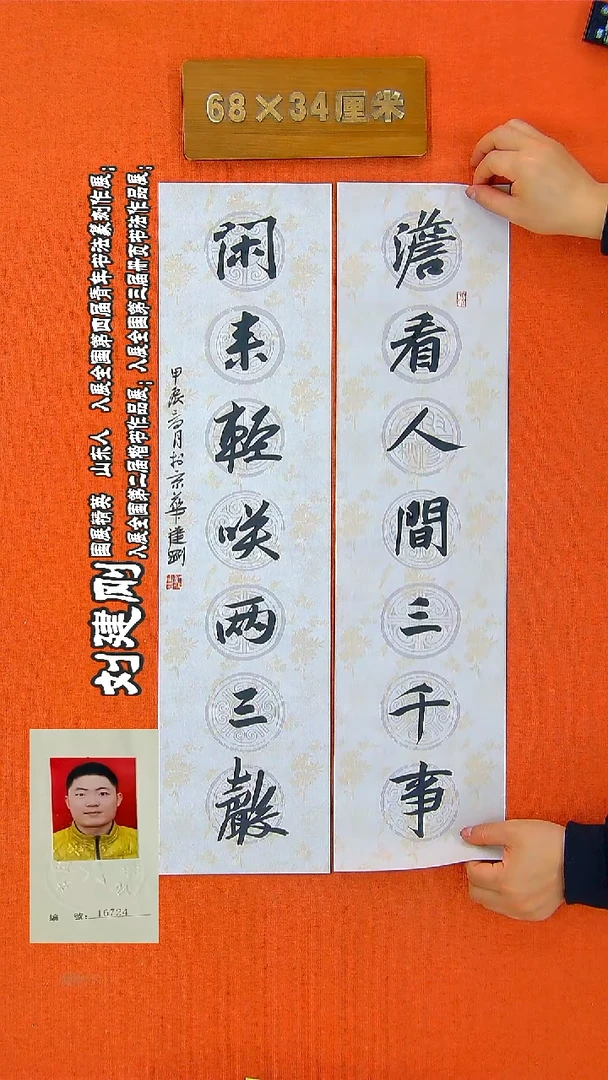 68×34厘米
澹看人間三千事
闲来輕咲两三聲
甲辰高月於京華建剛
刘建刚
国展精英 山东人 入展全国第四届青年书法篆刻作展；
入展全国第二届楷书作品展；入展全国第三届册页书法作品展；
編 號：16724